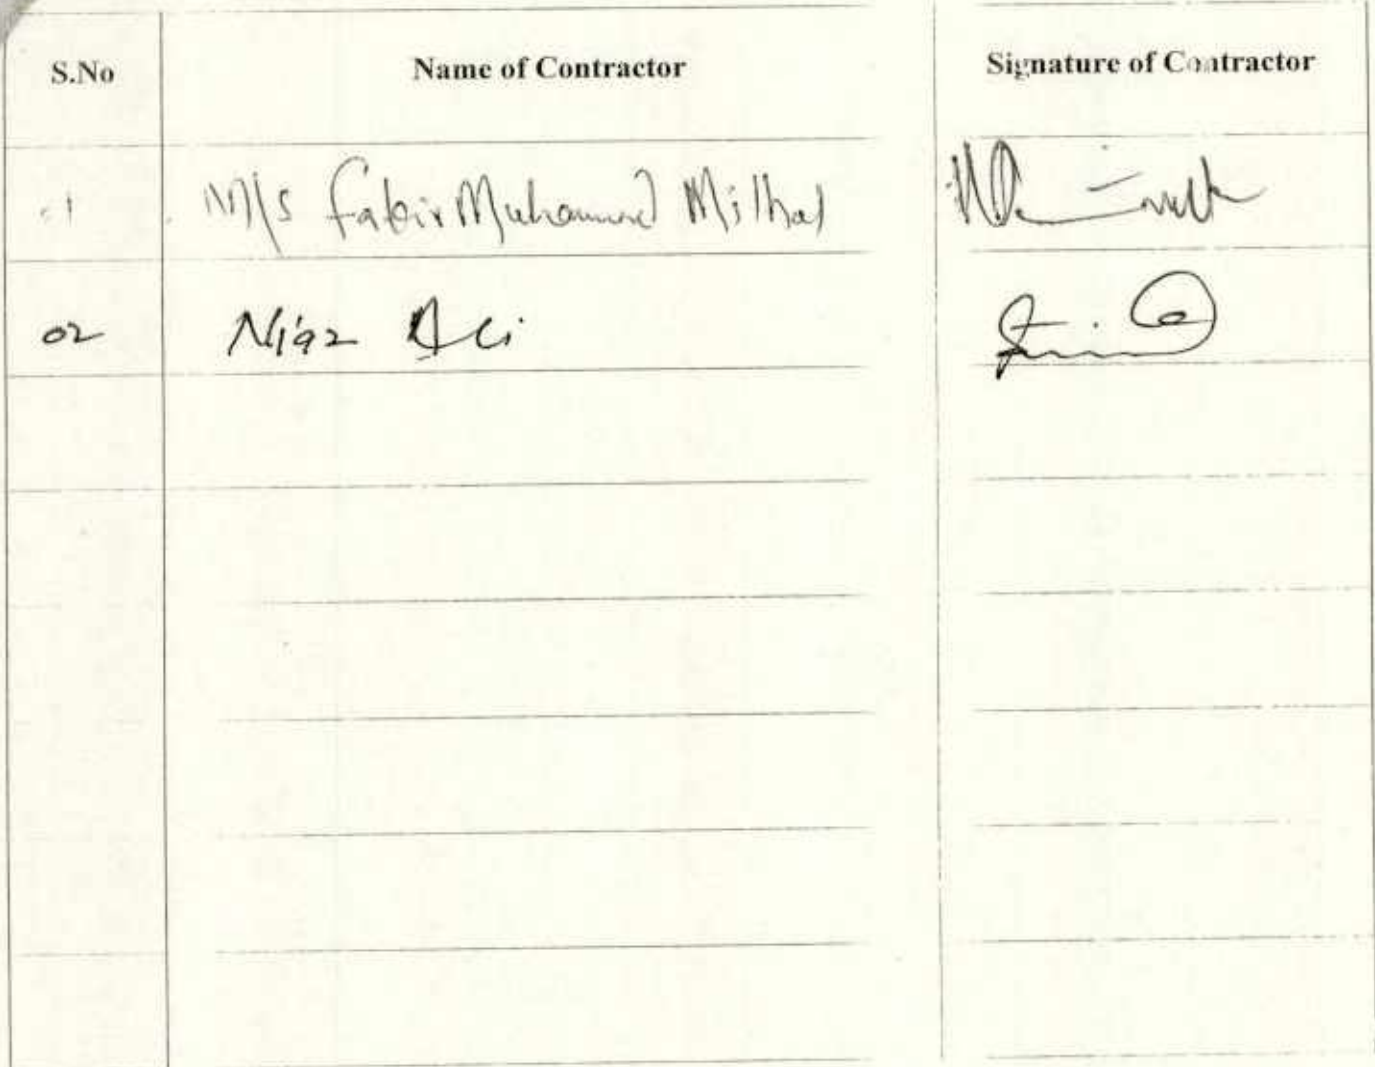 S.No Name of Contractor Signature of Contractor
M/s Fakir Muhammad Mithal
02 Niaz Ali